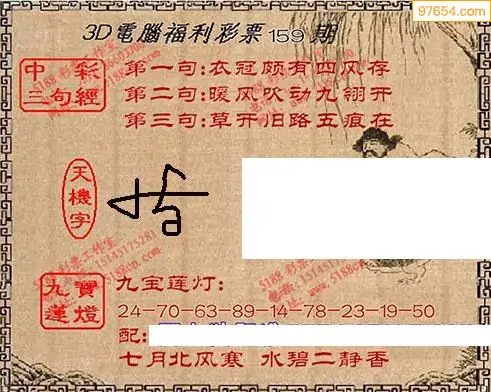 97654.com
3D電腦福利彩票159期
中彩三句經
第一句:衣冠颇有四风存
第二句:暖风吹动九翎开
第三句:草开旧路五痕在
天機字
九寶蓮燈
九宝莲灯:
24-70-63-89-14-78-23-19-50
配:
七月北风寒 水碧二静香
5188 彩票工作室
15145175281
5188cn.com